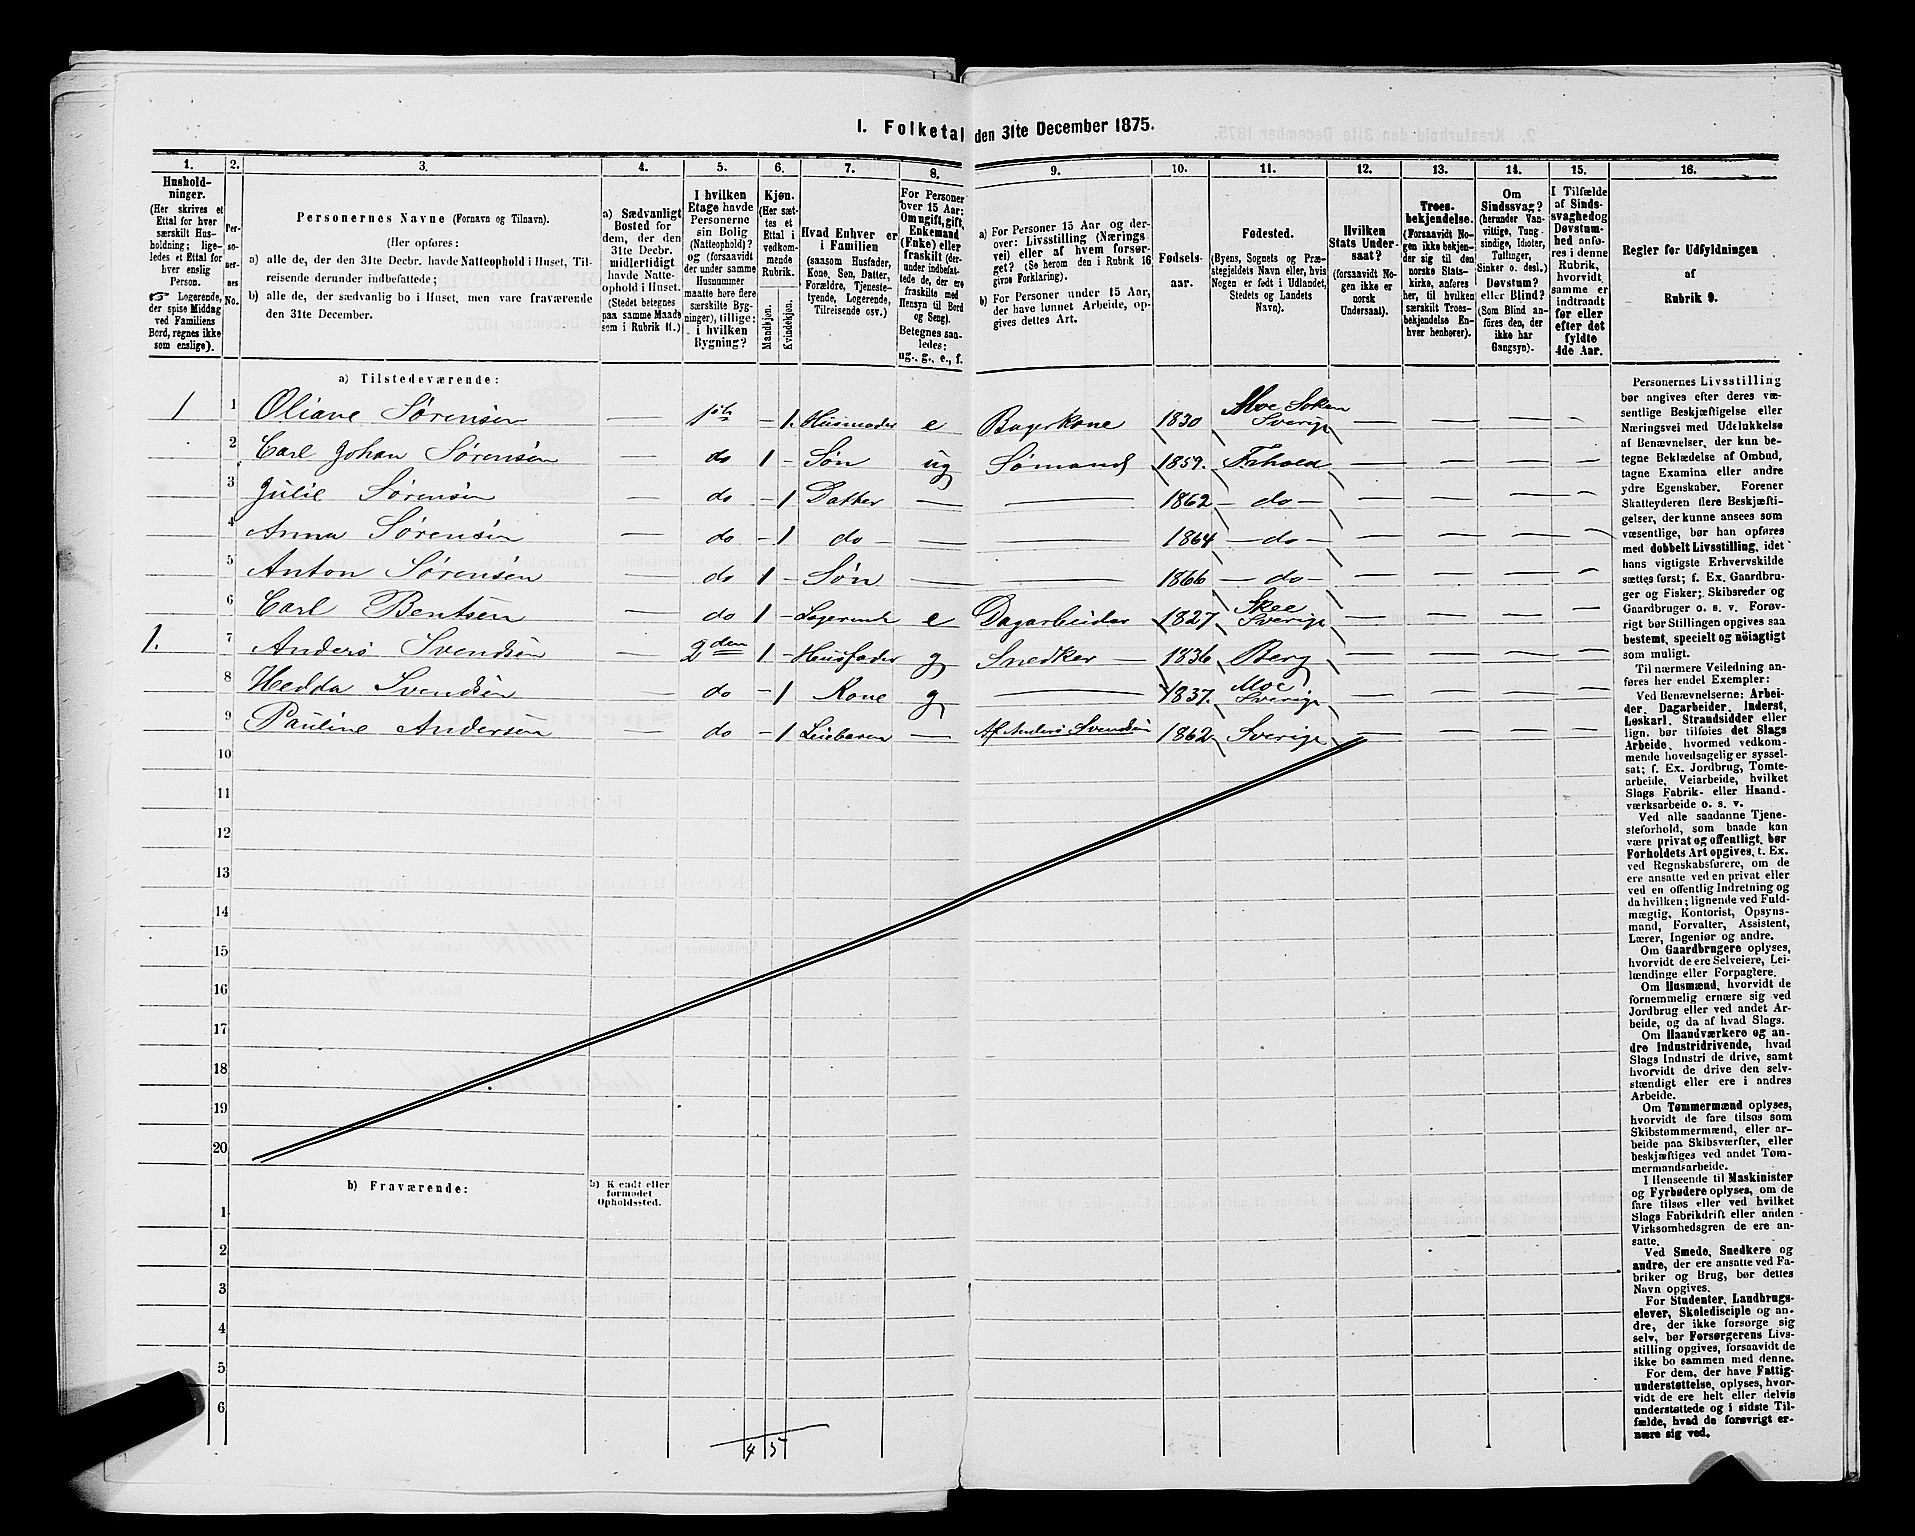 I. Folketal den 31te December 1875.
1. 2. 3. 4. 5. 6. 7. 8. 9. 10. 11. 12. 13. 14. 15. 16.
Hushold-
ninger.
(Her skrives et
Ettal for hver
særskilt Hus-
holdning; lige-
ledes et Ettal for
hver enslig
Person.
☞ Logerende,
der spise Middag
ved Familiens
Bord, regnes ikke
som enslige).
Per-
so-
ner-
nes-
No.
Personernes Navne (Fornavn og Tilnavn).
(Her opføres:
a) alle de, der den 31te Decbr. havde Natteophold i Huset, Til-
reisende derunder indbefattede;
b) alle de, der sædvanlig bo i Huset, men vare fraværende
den 31te December.
a) Sædvanligt
Bosted for
dem, der den
31te Decbr.
midlertidigt
havde Natte-
ophold i Huset.
(Stedet betegnes
paa samme Maade
som i Rubrik 11.)
I hvilken
Etage havde
Personerne
sin Bolig
(Natteophold)?
og (forsaavidt
der under samme
Husnummer
maatte høre flere
særskilte Byg-
ninger), tillige:
i hvilken
Bygning?
Kjøn.
(Her sæt-
tes et
Ettal i
vedkom-
mende
Rubrik.
Mandkjøn.
Kvindekjøn.
Hvad Enhver er
i Familien
(saasom Husfader,
Kone, Søn, Datter,
Forældre, Tjeneste-
tyende, Logerende,
Tilreisende osv.)
For Personer
over 15 Aar:
Om ugift, gift,
Enkemand
(Enke) eller
fraskilt (der-
under indbefat-
tede de, der ere
fraskilte med
Hensyn til Bord
og Seng).
Betegnes saa-
ledes:
ug., g., e., f.
a) For Personer 15 Aar og der-
over: Livsstilling (Nærings
vei) eller af hvem forsør-
get? (Se herom den i Rubrik 16
givne Forklaring).
b) For Personer under 15 Aar,
der have lønnet Arbeide, op-
gives dettes Art.
Fødsels-
aar.
Fødested.
(Byens, Sognets og Præ-
stegjeldets Navn eller, hvis
Nogen er født i Udlandet,
Stedets og Landets
Navn).
Hvilken
Stats Under-
saat?
(forsaavidt No-
gen ikke er
norsk
Undersaat).
Troes-
bekjendelse.
(Forsaavidt No-
gen ikke bekjen-
der sig til den
norske Stats-
kirke, anføres
her, til hvilken
særskilt Troes-
bekjendelse En-
hver henhører).
Om
Sindssvag?
(herunder Van-
vittige, Tung-
sindige, Idioter,
Tullinger,
Sinker o. desl.)
Døvstum?
eller Blind?
(Som Blind an-
føres den, der
ikke har
Gangsyn).
I Tilfælde
af Sinds-
svaghed og
Døvstum-
hed anfø-
res i denne
Rubrik,
hvorvidt
samme er
indtraadt
før eller
efter det
fyldte
4de Aar.
Regler før Udfyldningen
af
Rubrik 9.
a) Tilstedeværende:
1 1 Oliane Sørensen — 1ste — 1. Husmoder e Bagerkone 1830 Moe Soken Sverige — — — —
2 Carl Johan Sørensen — do 1 — Søn ug Sømand 1859. Frhald — — — —
3 Julie Sørensen — do — 1 Datter — — 1862 — do — — — — —
4 Anna Sørensen — do — 1 do — — — 1864 — do — — — — —
5 Anton Sørensen — do 1 — Søn — — 1866 — do — — — — —
6 Carl Bentsen — do 1 — Logerende e Dagarbeider 1827 Skee Sverige — — — —
1. 7 Anders Svendsen — 2den 1 — Husfader g Snedker — 1836 Berg — — — —
8 Hedda Svendsen — do — 1 Kone g — 1837. Moe Sverige — — — —
9 Pauline Andersen — do — 1 Leiebaren — Af Anders Svendsen 1862 Sverige — — — —
10
11
12
13
14
15
16
17
18
19
20
b) Fraværende:
b) Kjendt eller
formodet
Opholdssted.
1
2
3
4
5
6
4 5
Personernes Livsstilling
bør angives efter deres væ-
sentlige Beskjæftigelse eller
Næringsvei med Udelukkelse
af Benævnelser, der kun be-
tegne Beklædelse af Ombud,
tagne Examina eller andre
ydre Egenskaber. Forener
Skatteyderen flere Beskjæfti-
gelser, der kunne ansees som
væsentlige, bør han opføres
med dobbelt Livsstilling, idet
hans vigtigste Erhvervskilde
sættes først; f. Ex. Gaardbru-
ger og Fisker; Skibsreder og
Gaardbruger o. s. v. Forøv-
rigt bør Stillingen opgives saa
bestemt, specielt og nöiagtigt
som muligt.
Til nærmere Veiledning an-
føres her endel Exempler:
Ved Benævnelserne: Arbei-
der, Dagarbeider, Inderst,
Løskarl, Strandsidder eller
lign. bør tilføies det Slags
Arbeide, hvormed vedkom-
mende hovedsagelig er syssel-
sat; f. Ex. Jordbrug, Tomte-
arbeide, Veiarbeide, hvilket
Slags Fabrik- eller Haand-
værksarbeide o. s. v.
Ved alle saadanne Tjene-
steforhold, som baade kan
være privat og offentligt, bør
Forholdets Art opgives, t. Ex.
ved Regnskabsførere, om de
ere ansatte ved en privat eller
ved en offentlig Indretning og
da hvilken; lignende ved Fuld-
mægtig, Kontorist, Opsyns-
mand, Forvalter, Assistent,
Lærer, Ingeniør og andre.
Om Gaardbrugere oplyses,
hvorvidt de ere Selveiere, Lei-
lændinge eller Forpagtere.
Om Husmænd, hvorvidt de
fornemmelig ernære sig ved
Jordbrug eller ved andet Ar-
beide, og da af hvad Slags.
Om Haandværkere og an-
dre Industridrivende, hvad
Slags Industri de drive, samt
hvorvidt de drive den selv-
stændigt eller ere i andres
Arbeide.
Om Tømmermænd oplyses,
hvorvidt de fare tilsøs som
Skibstømmermænd, eller ar-
beide paa Skibsværfter, eller
beskjæftiges ved andet Tøm-
mermandsarbeide.
I Henseende til Maskinister
og Fyrbødere oplyses, om de
fare tilsøs eller ved hvilket
Slags Fabrikdrift eller anden
Virksomhedsgren de ere an-
satte.
Ved Smede, Snedkere og
andre, der ere ansatte ved Fa-
briker og Brug, bør dettes
Navn opgives.
For Studenter, Landbrugs-
elever, Skoledisciple og an-
dre, der ikke forsørge sig
selv, bør Forsørgerens Livs-
stilling opgives, forsaavidt de
ikke bo sammen med denne.
For dem, der have Fattig-
understøttelse, oplyses, hvor-
vidt de ere helt eller delvis
understøttede og i sidste Til-
fælde, hvad de forøvrigt er-
nære sig ved.